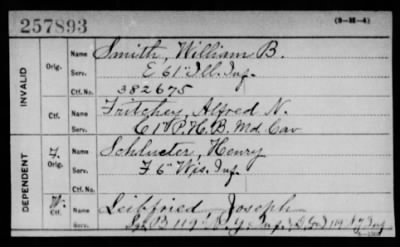 257893
(3-M-4)
INVALID
Orig.
Name Smith, William B.
Serv. E 61" Ill. Inf.
Ctf. No. 382675
Ctf.
Name Fritchey, Alfred N.
Serv. C 1st P.H.B. Md Cav
DEPENDENT
F. Orig.
Name Schlueter, Henry
Serv. F 6" Wis. Inf.
Ctf. No.
W. Ctf.
Name Leibfried, Joseph
Serv. B 119" N.Y. Inf.